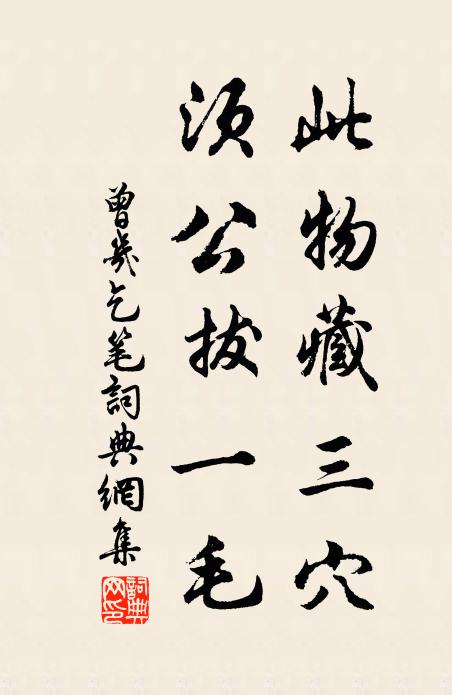 此物藏三穴
須公拔一毛
曾幾乞筆詞典網集
詞典网印